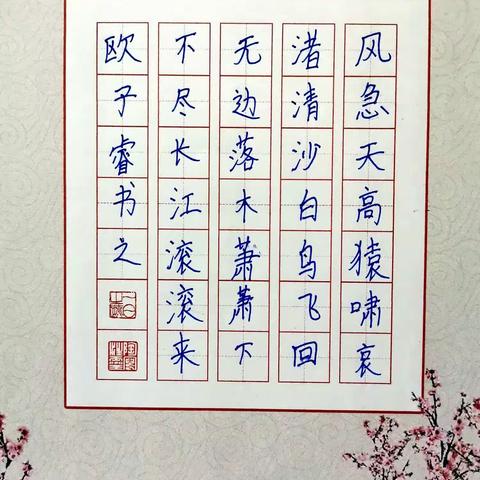 风急天高猿啸哀
渚清沙白鸟飞回
无边落木萧萧下
不尽长江滚滚来
欧予睿书之